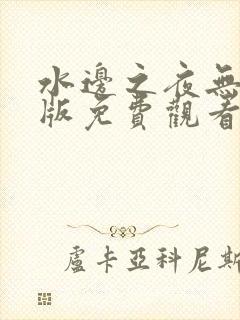 水邊之夜無
版免費觀看
盧卡亞科尼斯